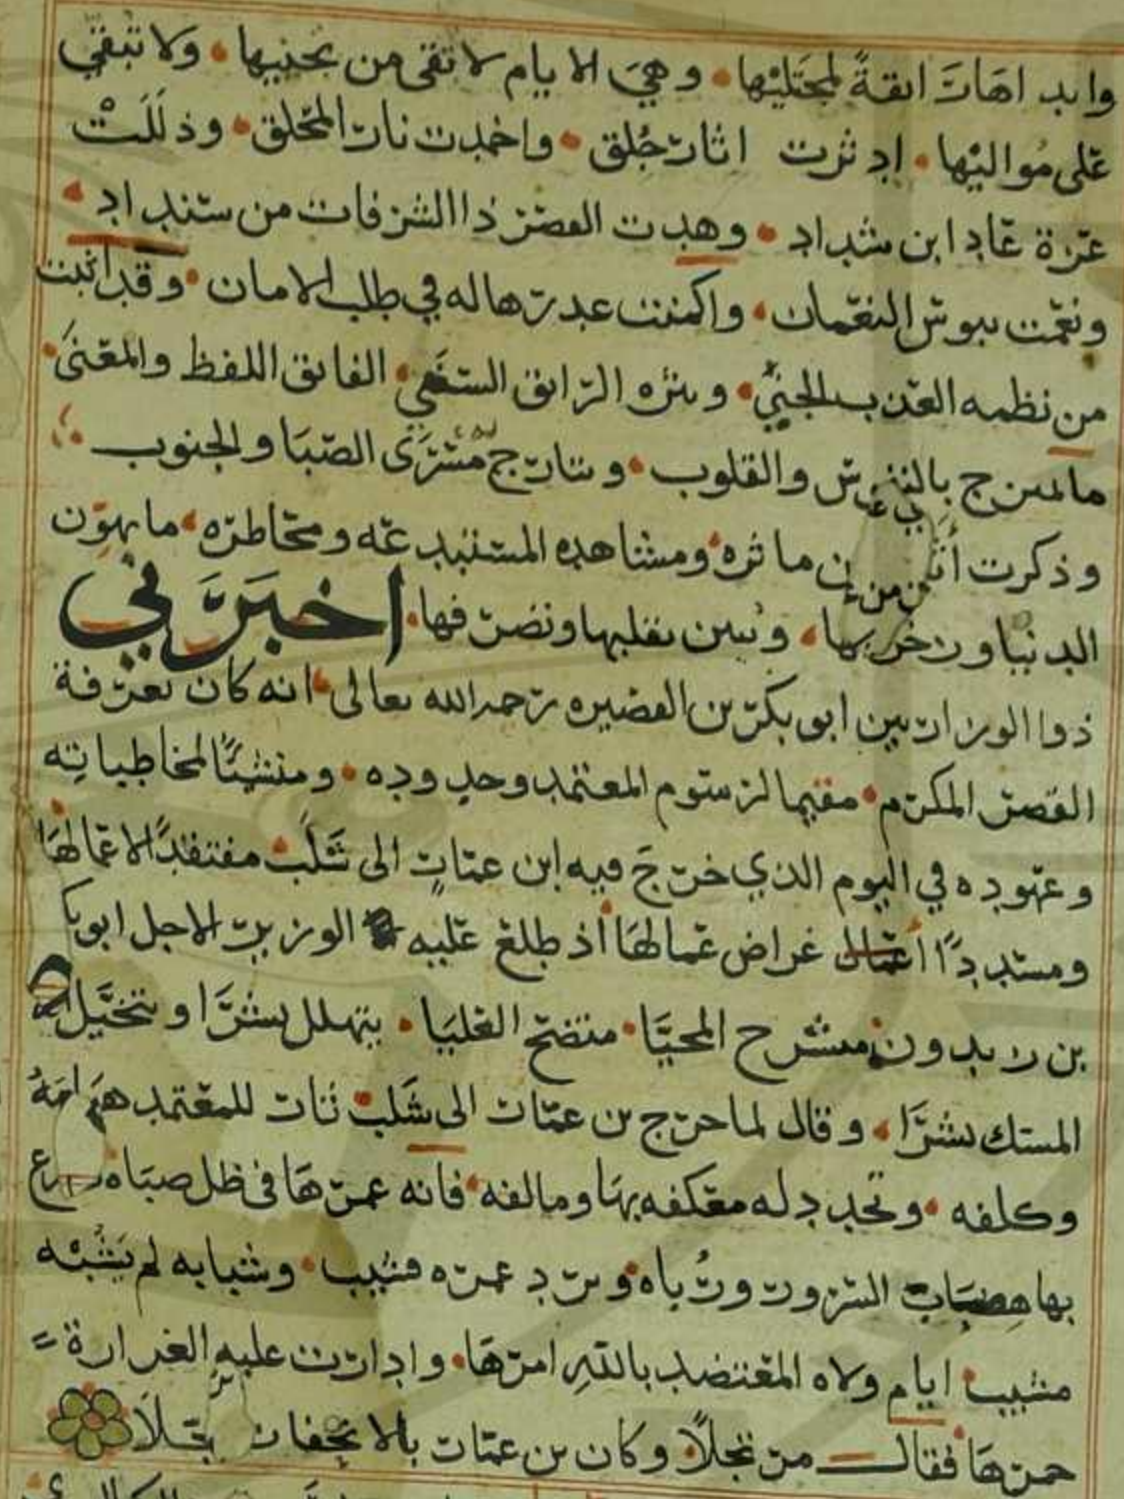 وابد اهات انقة لمجتليها وهي الايام لا تقى من تجنيها ولا تبقي
على مواليها ادثرت اثار جلق واخمدت نار المحلق وذللت
عزة عاد ابن شداد وهدت القصر ذا الشرفات من سنداد
ونعمت ببوس النعمان واكمنت عدرها له في طلب الامان وقد اثبت
من نظمه العذب الجني ونثره الرايق السني الفايق اللفظ والمعنى
ما يمتزج بالنفوس والقلوب وتتارج مسرى الصبا والجنوب
وذكرت ماثره ومشاهده ومخاطره ما يهون
الدنيا وزخرفها وتبين تقلبها وتصرفها اخبرني
ذوا الوزارتين ابو بكر بن القصيره رحمه الله تعالى انه كان بغرفة
القصر المكرم مقيما لرسوم المعتمد وحدوده ومنشيا لمخاطباته
وعهوده في اليوم الذي خرج فيه ابن عمار الى شلب مفتقدا لاعمالها
ومسددا اغراض عمالها اذ طلع عليه الوزير الاجل ابو بكر
بن زيدون منشرح المحيا متضح العليا يتهلل بشرا وتتخيل
المسك نشرا وقال لما خرج بن عمار الى شلب ثارت للمعتمد
وكلفه وتجدد له معكفه بها ومالفه فانه عمرها في ظل صباه
بها السرور ورباه وبرد عمره قشيب وشبابه لم يشبه
مشيب ايام ولاه المعتضد بالله امرها وادارت عليه الغرارة
خمرها فقال مرتجلا وكان بن عمار بالانجفار